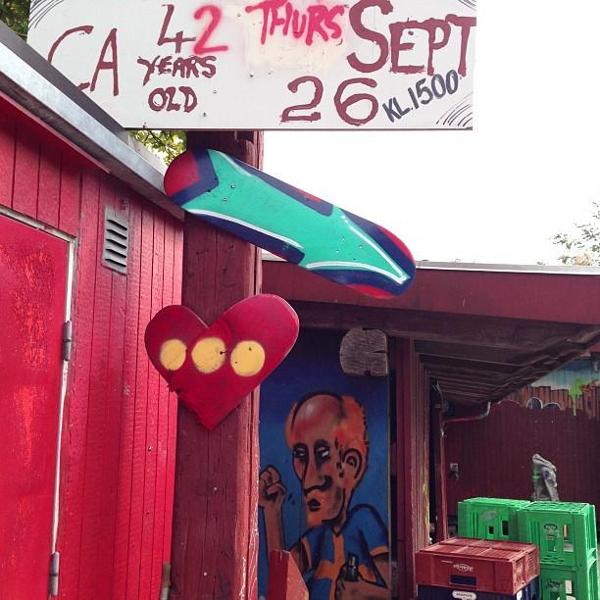 CA 42 YEARS OLD
THURS 26 SEPT
KL.1500